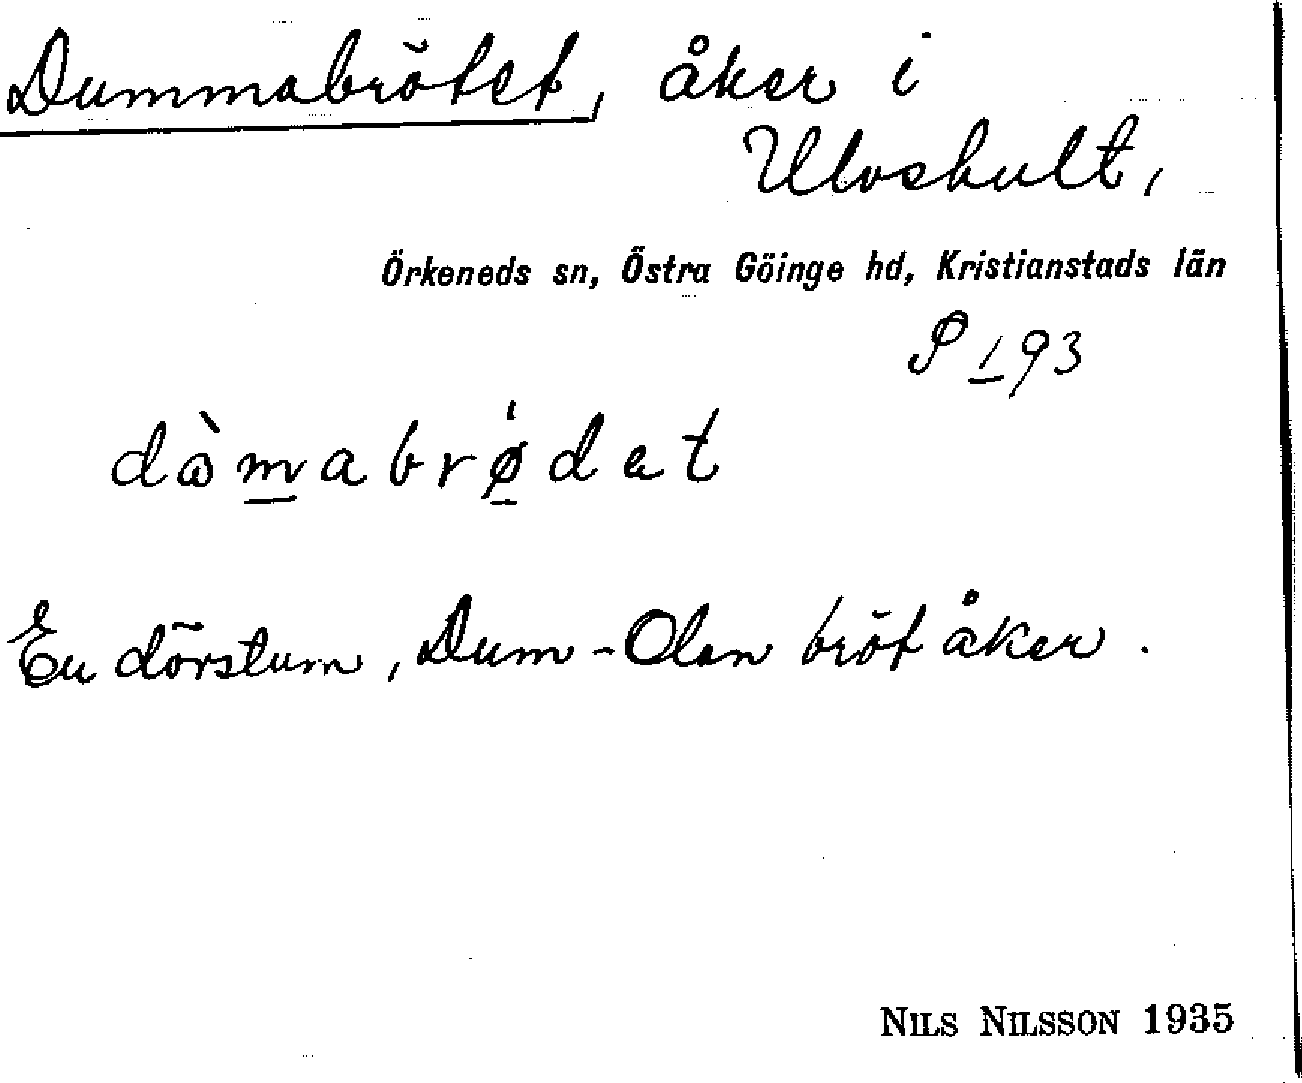 Dummabrötet, åker i
Ulvshult,
Örkeneds sn, Östra Göinge hd, Kristianstads län
P 193
dòmabrø̀dat
En dövstum, Dum-Olan bröt åker.
NILS NILSSON 1935